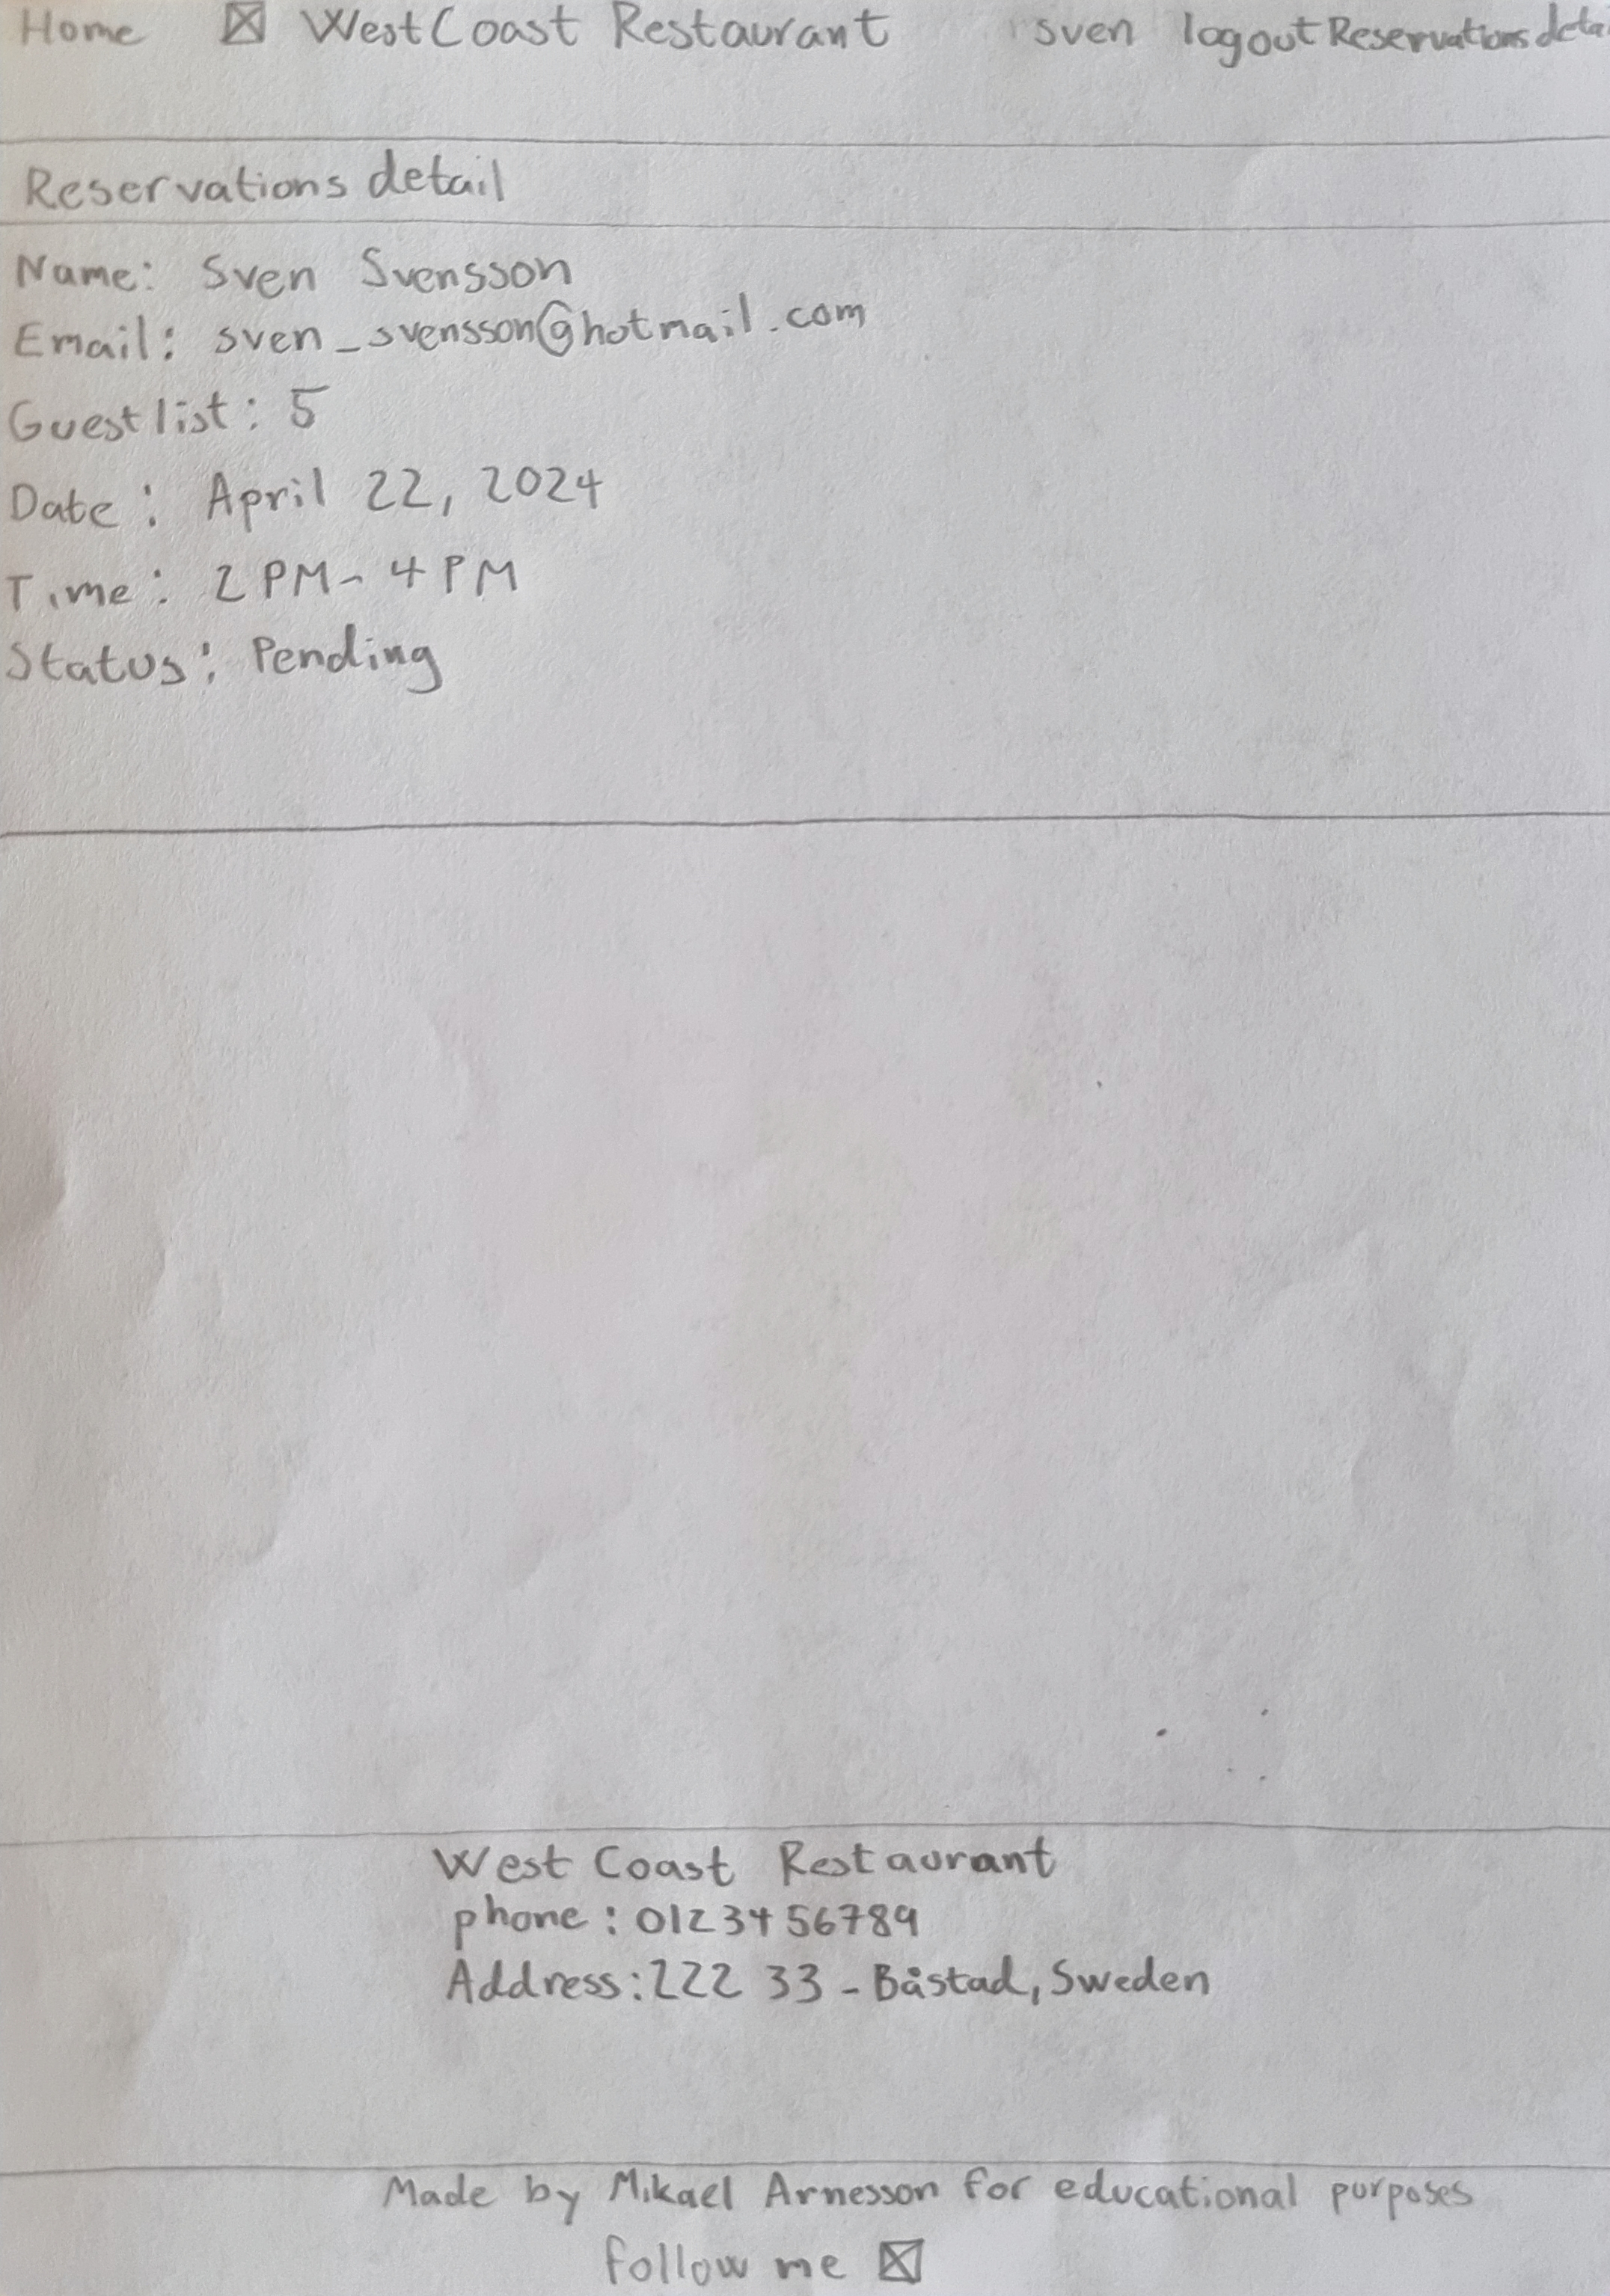 Home WestCoast Restaurant sven logout Reservations detai
Reservations detail
Name: Sven Svensson
Email: sven_svensson@hotmail.com
Guestlist: 5
Date: April 22, 2024
Time: 2 PM - 4 PM
Status: Pending
West Coast Restaurant
phone: 0123456789
Address: 222 33 - Båstad, Sweden
Made by Mikael Arnesson for educational purposes
follow me